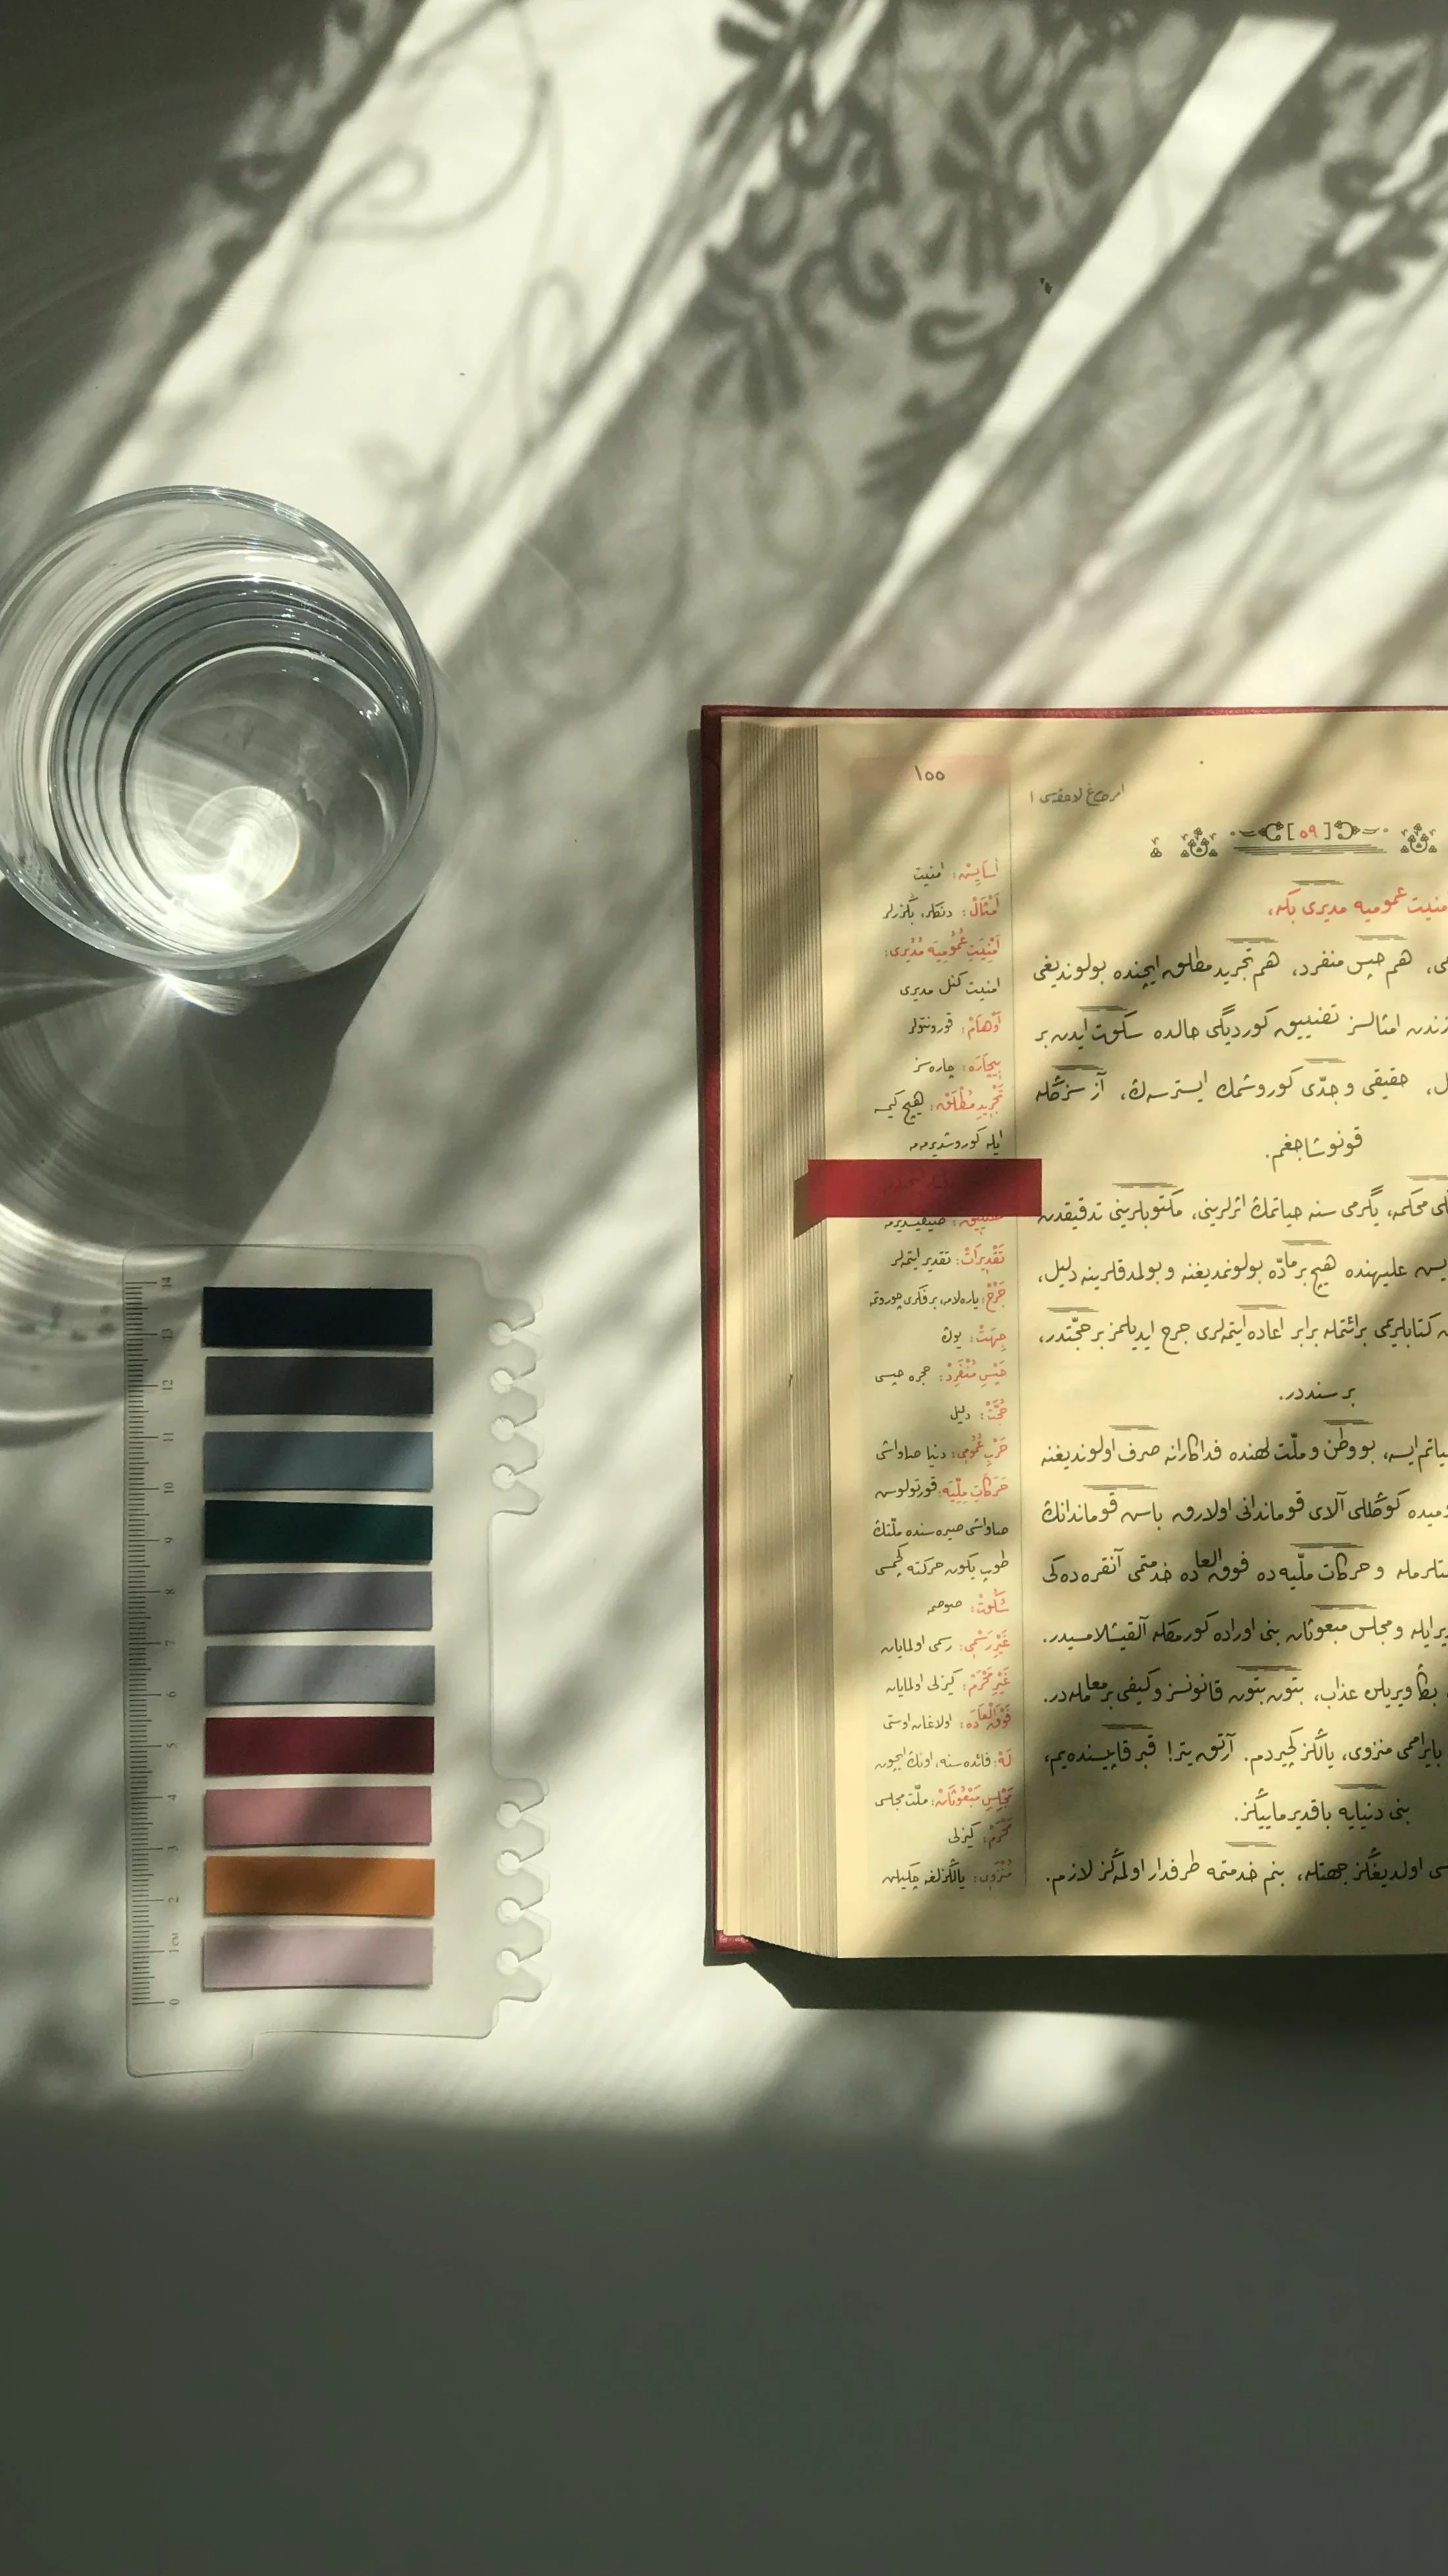 ١٥٥
امرداغ لاحقه‌سی ١
[٥٩]
امنیت عمومیه مدیری بكه،
هم حبس منفرد، هم تجرید مطلق ایچنده بولوندیغی
امثالسز تضییق كوردیگی حالده سكوت ایدن بر
حقیقی و جدّی كوروشمك ایسترسه‌ڭ، آز سزڭله
قونوشاجغم.
محكمه، یگرمی سنه حیاتمڭ اثرلرینی، مكتوبلرینی تدقیقدن
علیهنده هیچ بر مادّه بولونمدیغنه و بولمدقلرینه دلیل،
كتابلریمی برائتمله برابر اعاده ایتمه‌لری جرح ایدیلمز بر حجّتدر،
بر سنددر.
ایسه، بو وطن و ملّت لهنده فداكارانه صرف اولوندیغنه
كوڭللی آلای قوماندانی اولارق باش قوماندانڭ
و حركات ملّیه‌ده فوق العاده خدمتمی آنقره‌ده‌كی
و مجلس مبعوثان بنی اوراده كورمكله آلقیشلامسیدر.
ویریلن عذاب، بتون بتون قانونسز و كیفی بر معامله‌در.
منزوی، یالڭز كچیردم. آرتق یتر! قبر قاپیسنده‌یم،
بنی دنیایه باقدیرمایڭز.
اولدیغڭز جهتله، بنم خدمتمه طرفدار اولمه‌ڭز لازم.
أسایش: امنیت
أمثال: دنكلر، بڭزرلر
أمنیت عمومیه مدیری:
امنیت گنل مدیری
أوهام: قورونتولر
بیچاره: چاره‌سز
تجرید مطلق: هیچ كیمسه
ایله كوروشدیرمه‌مه
تضییق: صیقیشدیرمه
تقدیرات: تقدیر ایتمه‌لر
جرح: یاره‌لامه، بر فكری چوروتمه
جهت: یوڭ
حبس منفرد: حجره حبسی
حجّت: دلیل
حرب عمومی: دنیا صاواشی
حركات ملّیه: قورتولوش
صاواشی صیره‌سنده ملّتڭ
طوپ یكون حركته كچمسی
سكوت: صوصمه
غیر رسمی: رسمی اولمایان
غیر محرم: كیزلی اولمایان
فوق العاده: اولاغان اوستی
له: فائده‌سنه، اونڭ ایچون
مجلس مبعوثان: ملّت مجلسی
محرم: كیزلی
منزوی: یالڭزلغه چكیلن
14
13
12
11
10
9
8
7
6
5
4
3
2
1 CM
0